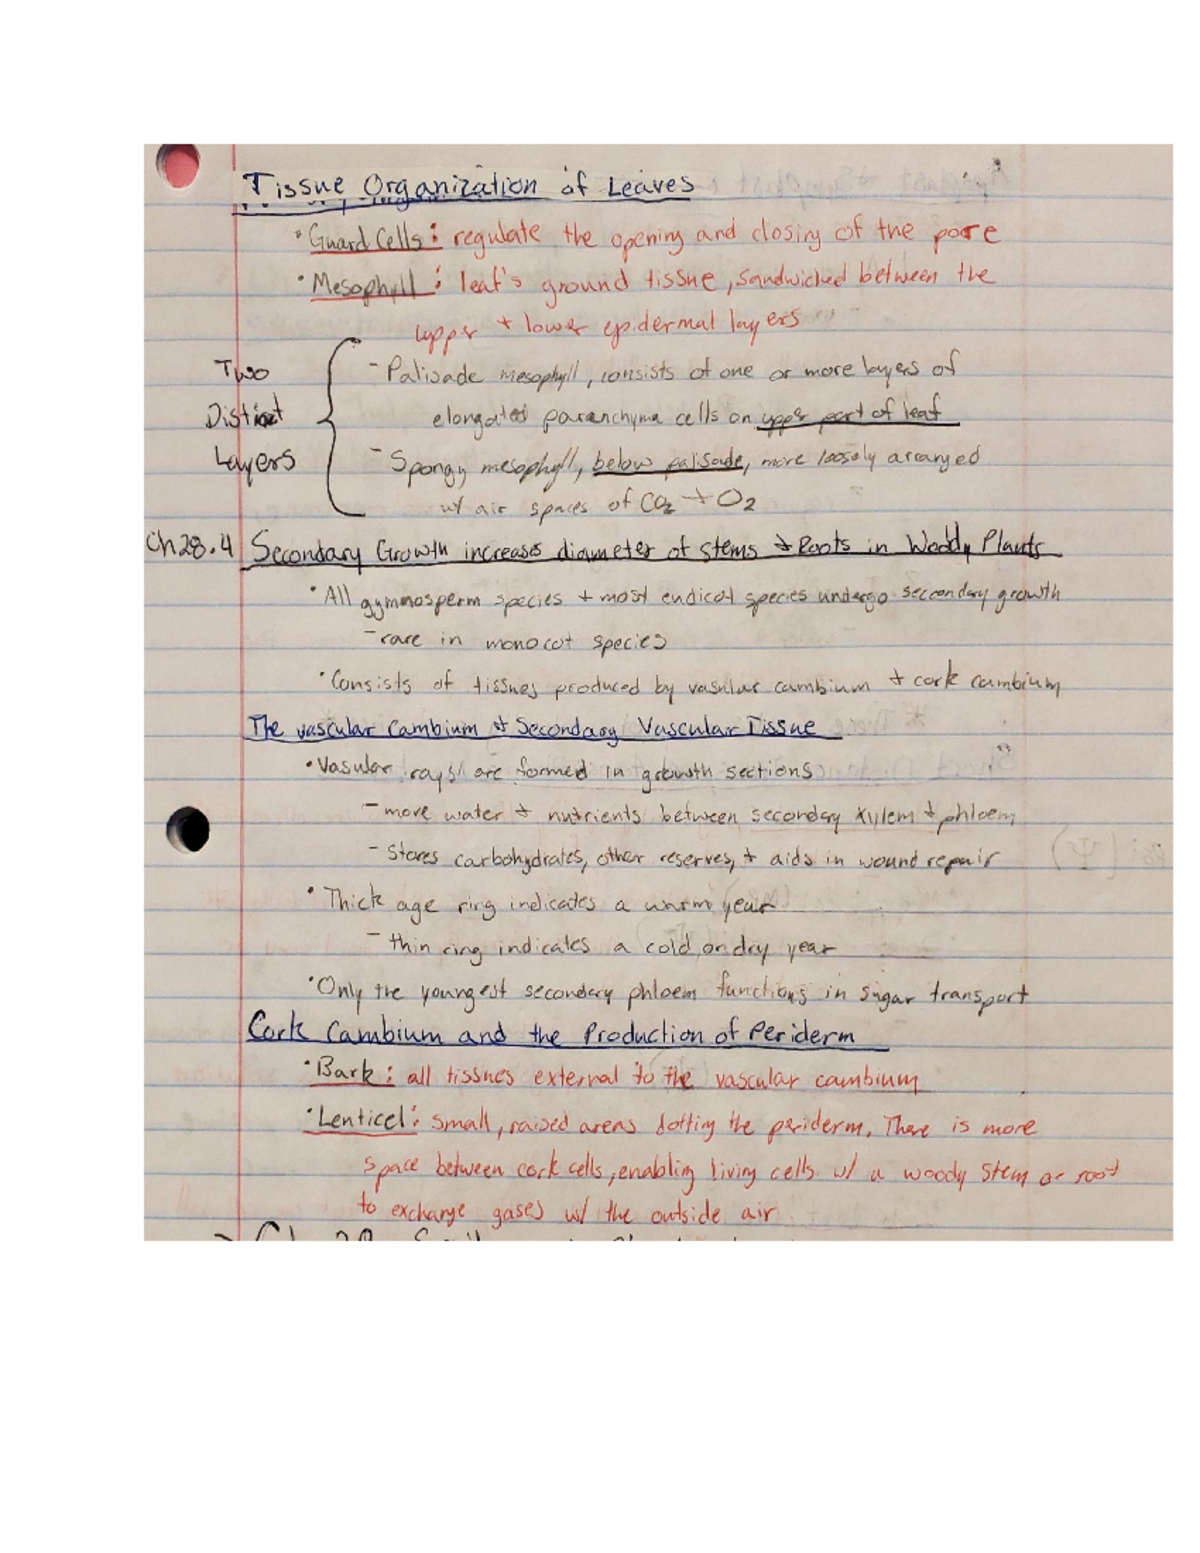 Tissue Organization of Leaves
• Guard Cells: regulate the opening and closing of the pore
• Mesophyll: leaf's ground tissue, sandwiched between the
upper + lower epidermal layers
Two Distinct Layers
- Palisade mesophyll, consists of one or more layers of
elongated parenchyma cells on upper part of leaf
- Spongy mesophyll, below palisade, more loosely arranged
w/ air spaces of CO2 + O2
Ch 28.4 Secondary Growth increases diameter of stems + Roots in Woody Plants
• All gymnosperm species + most eudicot species undergo secondary growth
- rare in monocot species
• Consists of tissues produced by vascular cambium + cork cambium
The vascular Cambium + Secondary Vascular Tissue
• Vasular rays are formed in growth sections
- more water + nutrients between secondary xylem + phloem
- Stores carbohydrates, other reserves, + aids in wound repair
• Thick age ring indicates a warm year
- thin ring indicates a cold or dry year
• Only the youngest secondary phloem functions in sugar transport
Cork Cambium and the Production of Periderm
• Bark: all tissues external to the vascular cambium
• Lenticel: small, raised areas dotting the periderm. There is more
space between cork cells, enabling living cells w/ a woody stem or root
to exchange gases w/ the outside air